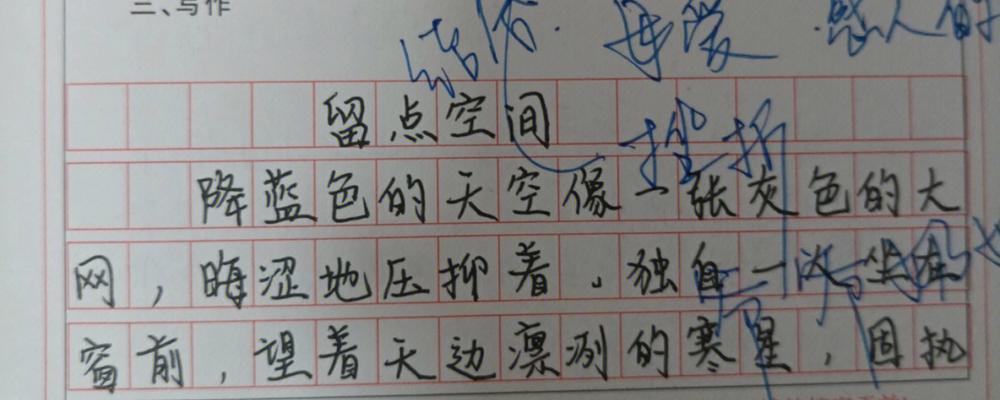 三、写作
结尾. 再爱 感人的
挫折
留点空间
降蓝色的天空像一张灰色的大
网，晦涩地压抑着。独自一人坐在
窗前，望着天边凛冽的寒星，固执